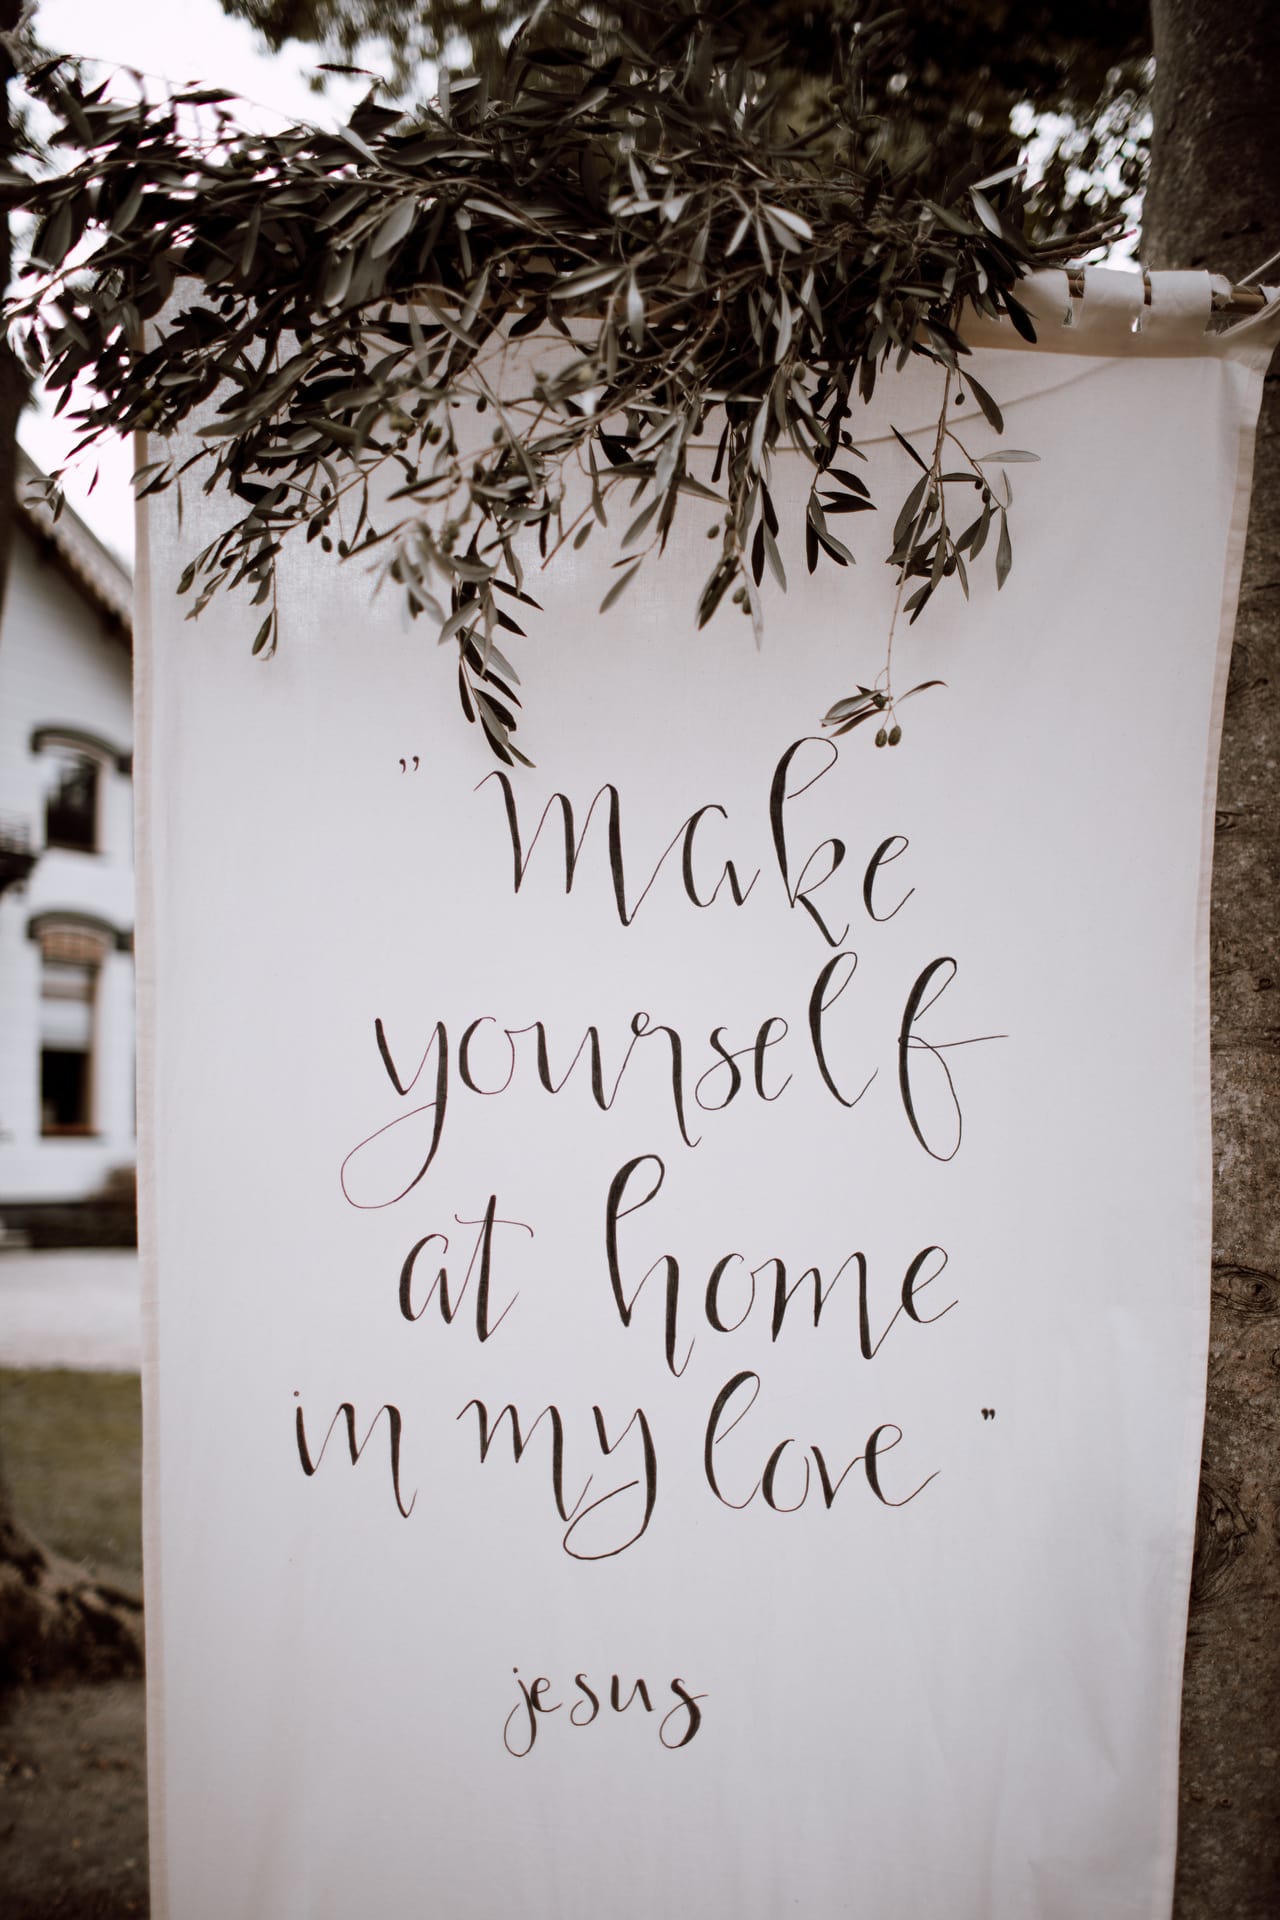 "make
yourself
at home
in my love"
jesus